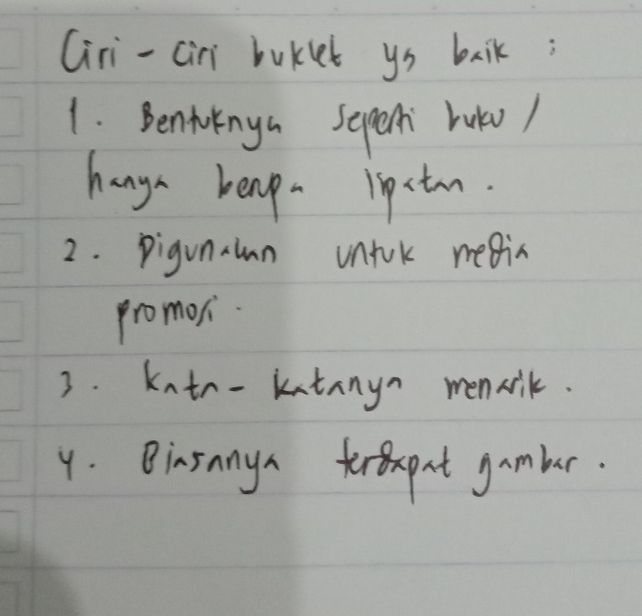 Ciri - ciri buklet yg baik :
1. Bentuknya seperti buku /
hanya berupa lipatan.
2. Digunakan untuk media
promosi.
3. Kata - katanya menarik.
4. Biasanya terdapat gambar.